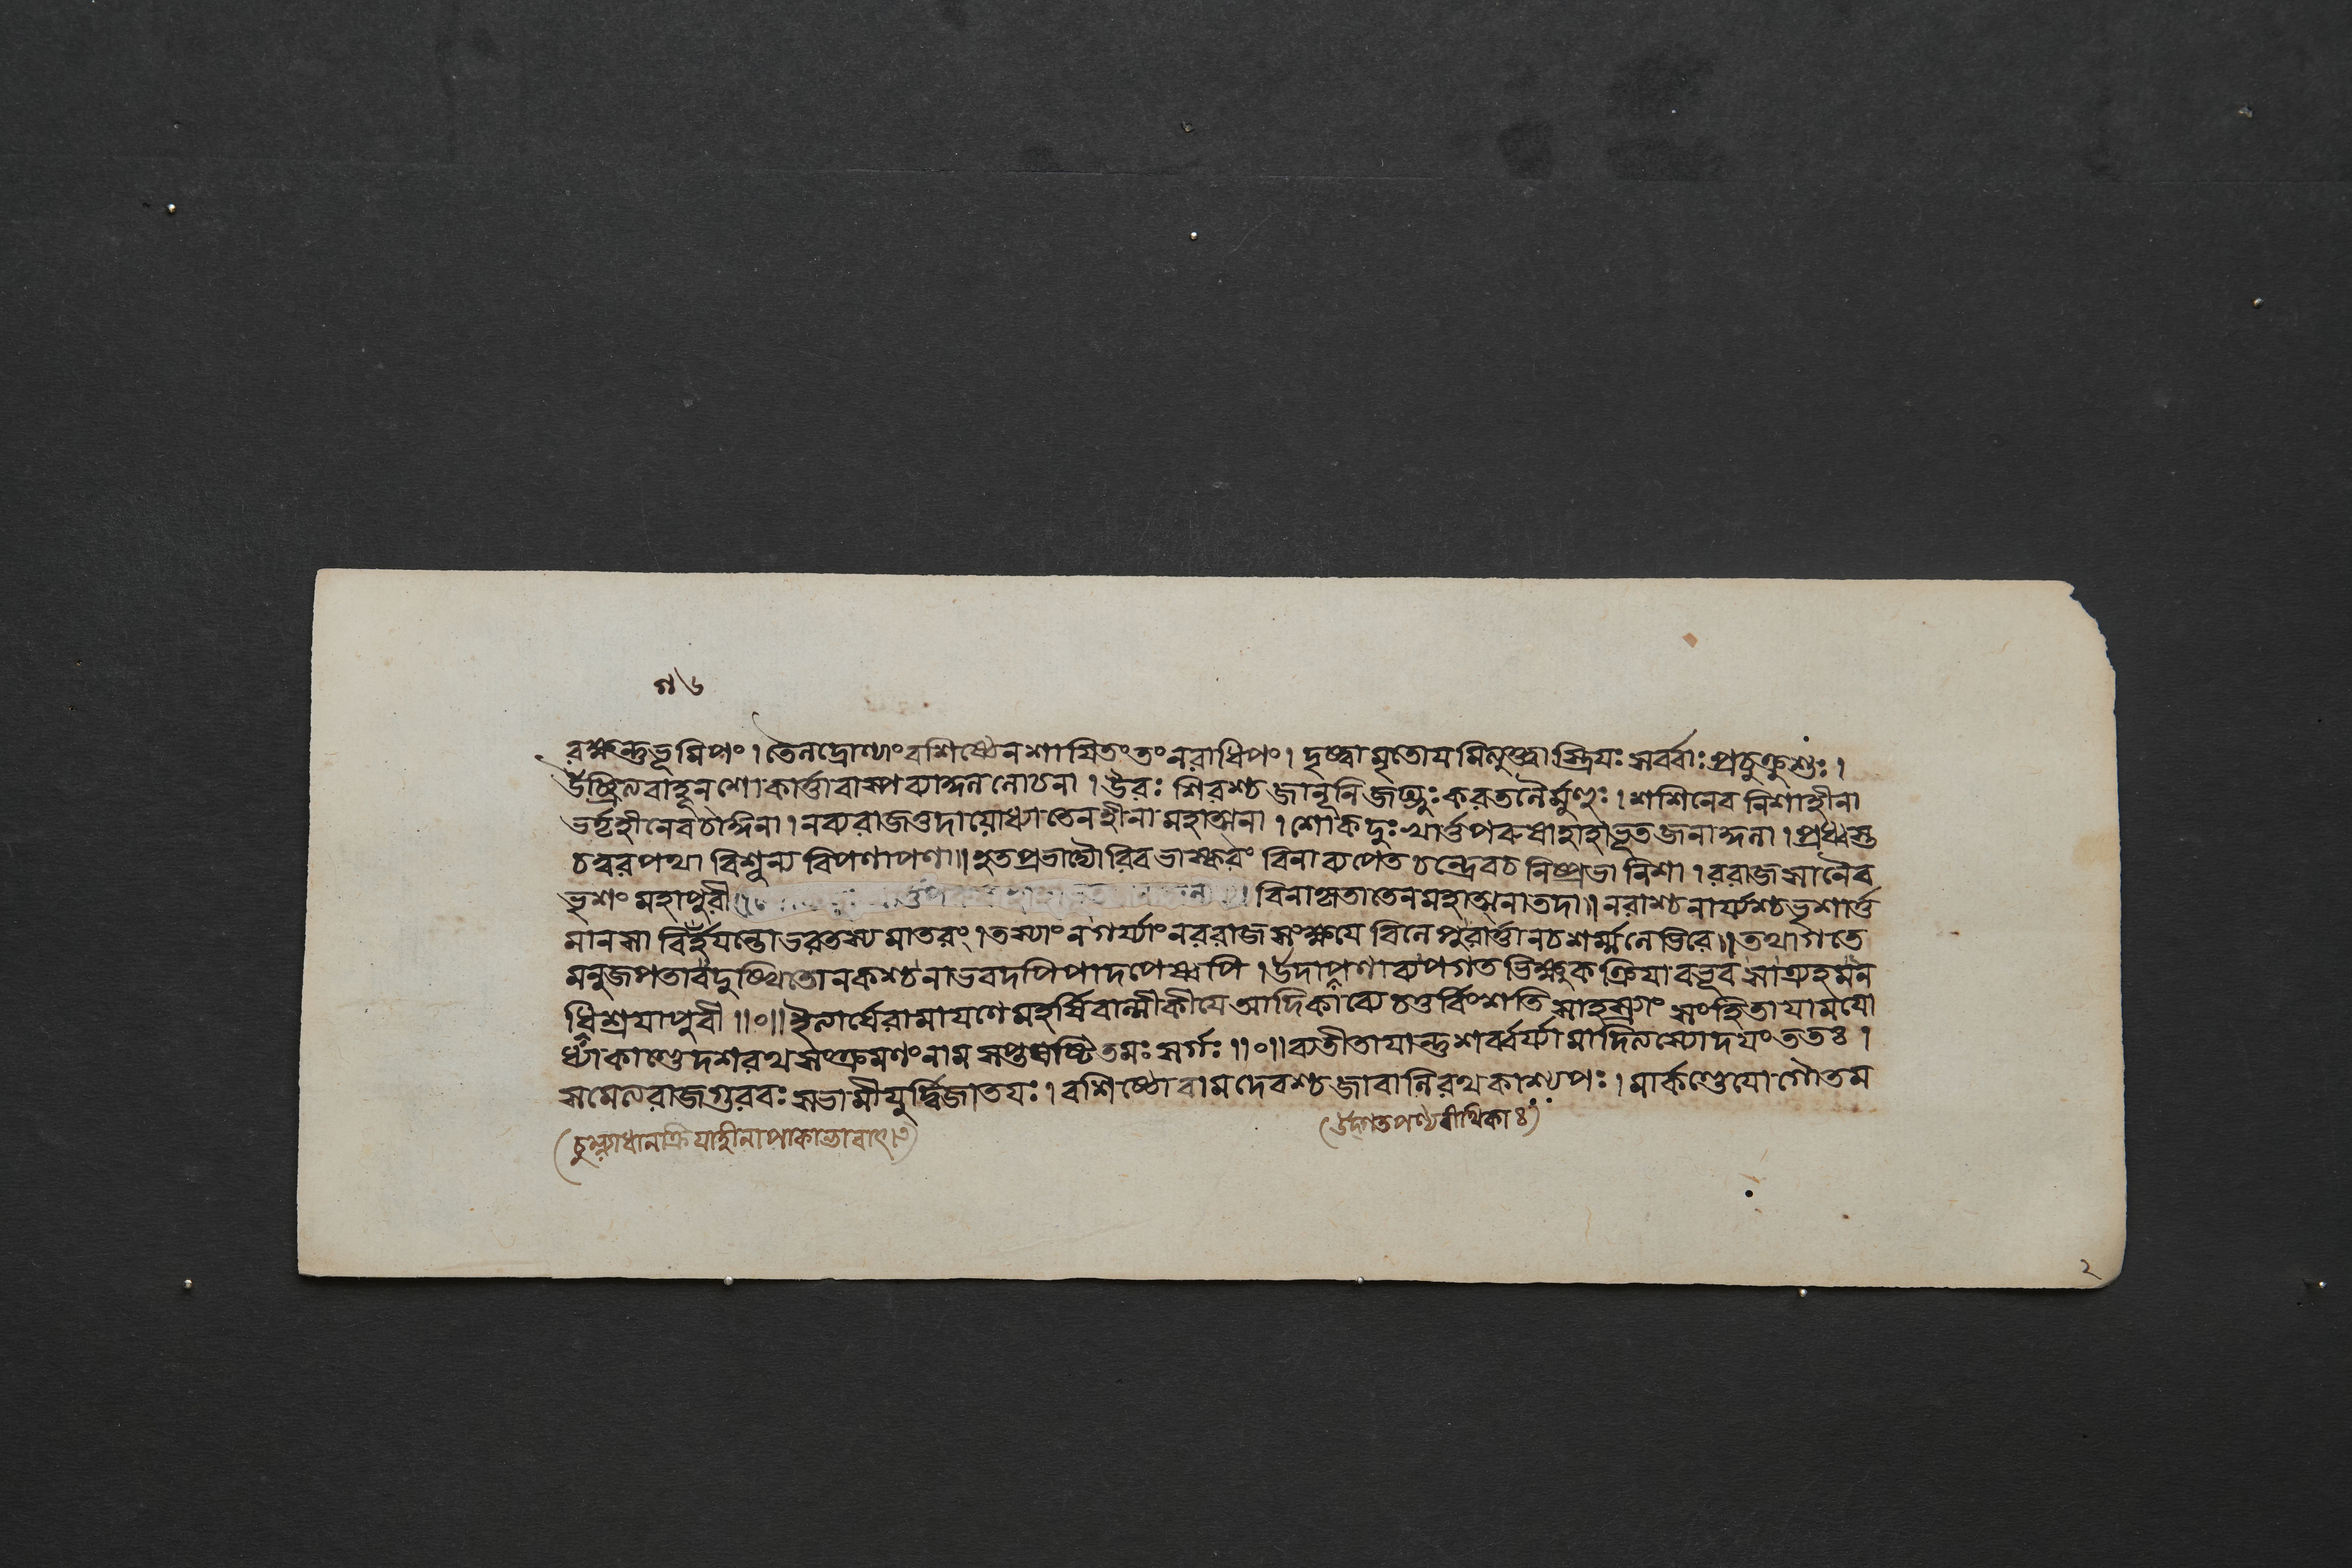 ৭৬
রক্ষন্তুভূমিপং । তেনদ্রোণ্যাংবশিষ্ঠেনশায়িতংতংনরাধিপং । দৃষ্ট্বামৃতোযমিত্যুক্ত্বাস্ত্রিযঃসর্ব্বাঃপ্রচুক্রুশুঃ ।
উচ্ছ্রিত্যবাহূনশোকার্ত্তাবাষ্পব্যাপ্তাননোচনা । উরঃ শিরশ্চজানূনিজঘ্নুঃকরতলৈর্মুহুঃ । শশিনেব নিশাহীনা
ভর্তৃহীনেবচাঙ্গনা । নব্যরাজতদাযোধ্যাতেনহীনামহাত্মনা । শোকদুঃখার্ত্তপরুষাহাহাভূতজনাঙ্গনা । প্রধ্বস্ত
চত্বরপথা বিশূন্য বিপণাপণা॥ হৃতপ্রভাদ্যৌরিবভাস্করং বিনাব্যপেতচন্দ্রেবচনিষ্প্রভানিশা । ররাজসানৈব
ভৃশংমহাপুরী বিনাকৃতাতেনমহাত্মনাতদা॥ নরাশ্চনার্য্যশ্চভৃশার্ত্ত
মানসা বির্হযন্তোভরতস্যমাতরং । তস্যাংনগর্য্যাংনররাজসংক্ষযে বিনেদুরার্ত্তানচশর্ম্মলেভিরে॥ তথাগতে
মনুজপতাবদুঃস্থিতোনকশ্চনাভবদপিপাদপেষ্বপি । উদাপণাব্যপগতভিক্ষুকক্রিযাবভূবসাত্রুহমন
ধিশ্রযাপুরী ॥০॥ ইত্যার্ষেরামাযণেমহর্ষিবাল্মীকীযেআদিকাব্যেচতুর্বিংশতিসাহস্র্যাং সংহিতাযামযো
ধ্যাকাণ্ডেদশরথসংক্রমণংনামসপ্তষষ্টিতমঃসর্গঃ ॥০॥ ব্যতীতাযান্তুশর্ব্বর্য্যামাদিত্যস্যোদযংততঃ ।
সমেত্যরাজগুরবঃসভামীযুর্দ্বিজাতযঃ । বশিষ্ঠোবামদেবশ্চজাবালিরথকাশ্যপঃ । মার্কণ্ডেযোগৌতম
(উদ্গতপণ্যবীথিকাঃ)
(চুল্ল্যাধানক্রিযাহীনাপাকাভাবাৎ)
২